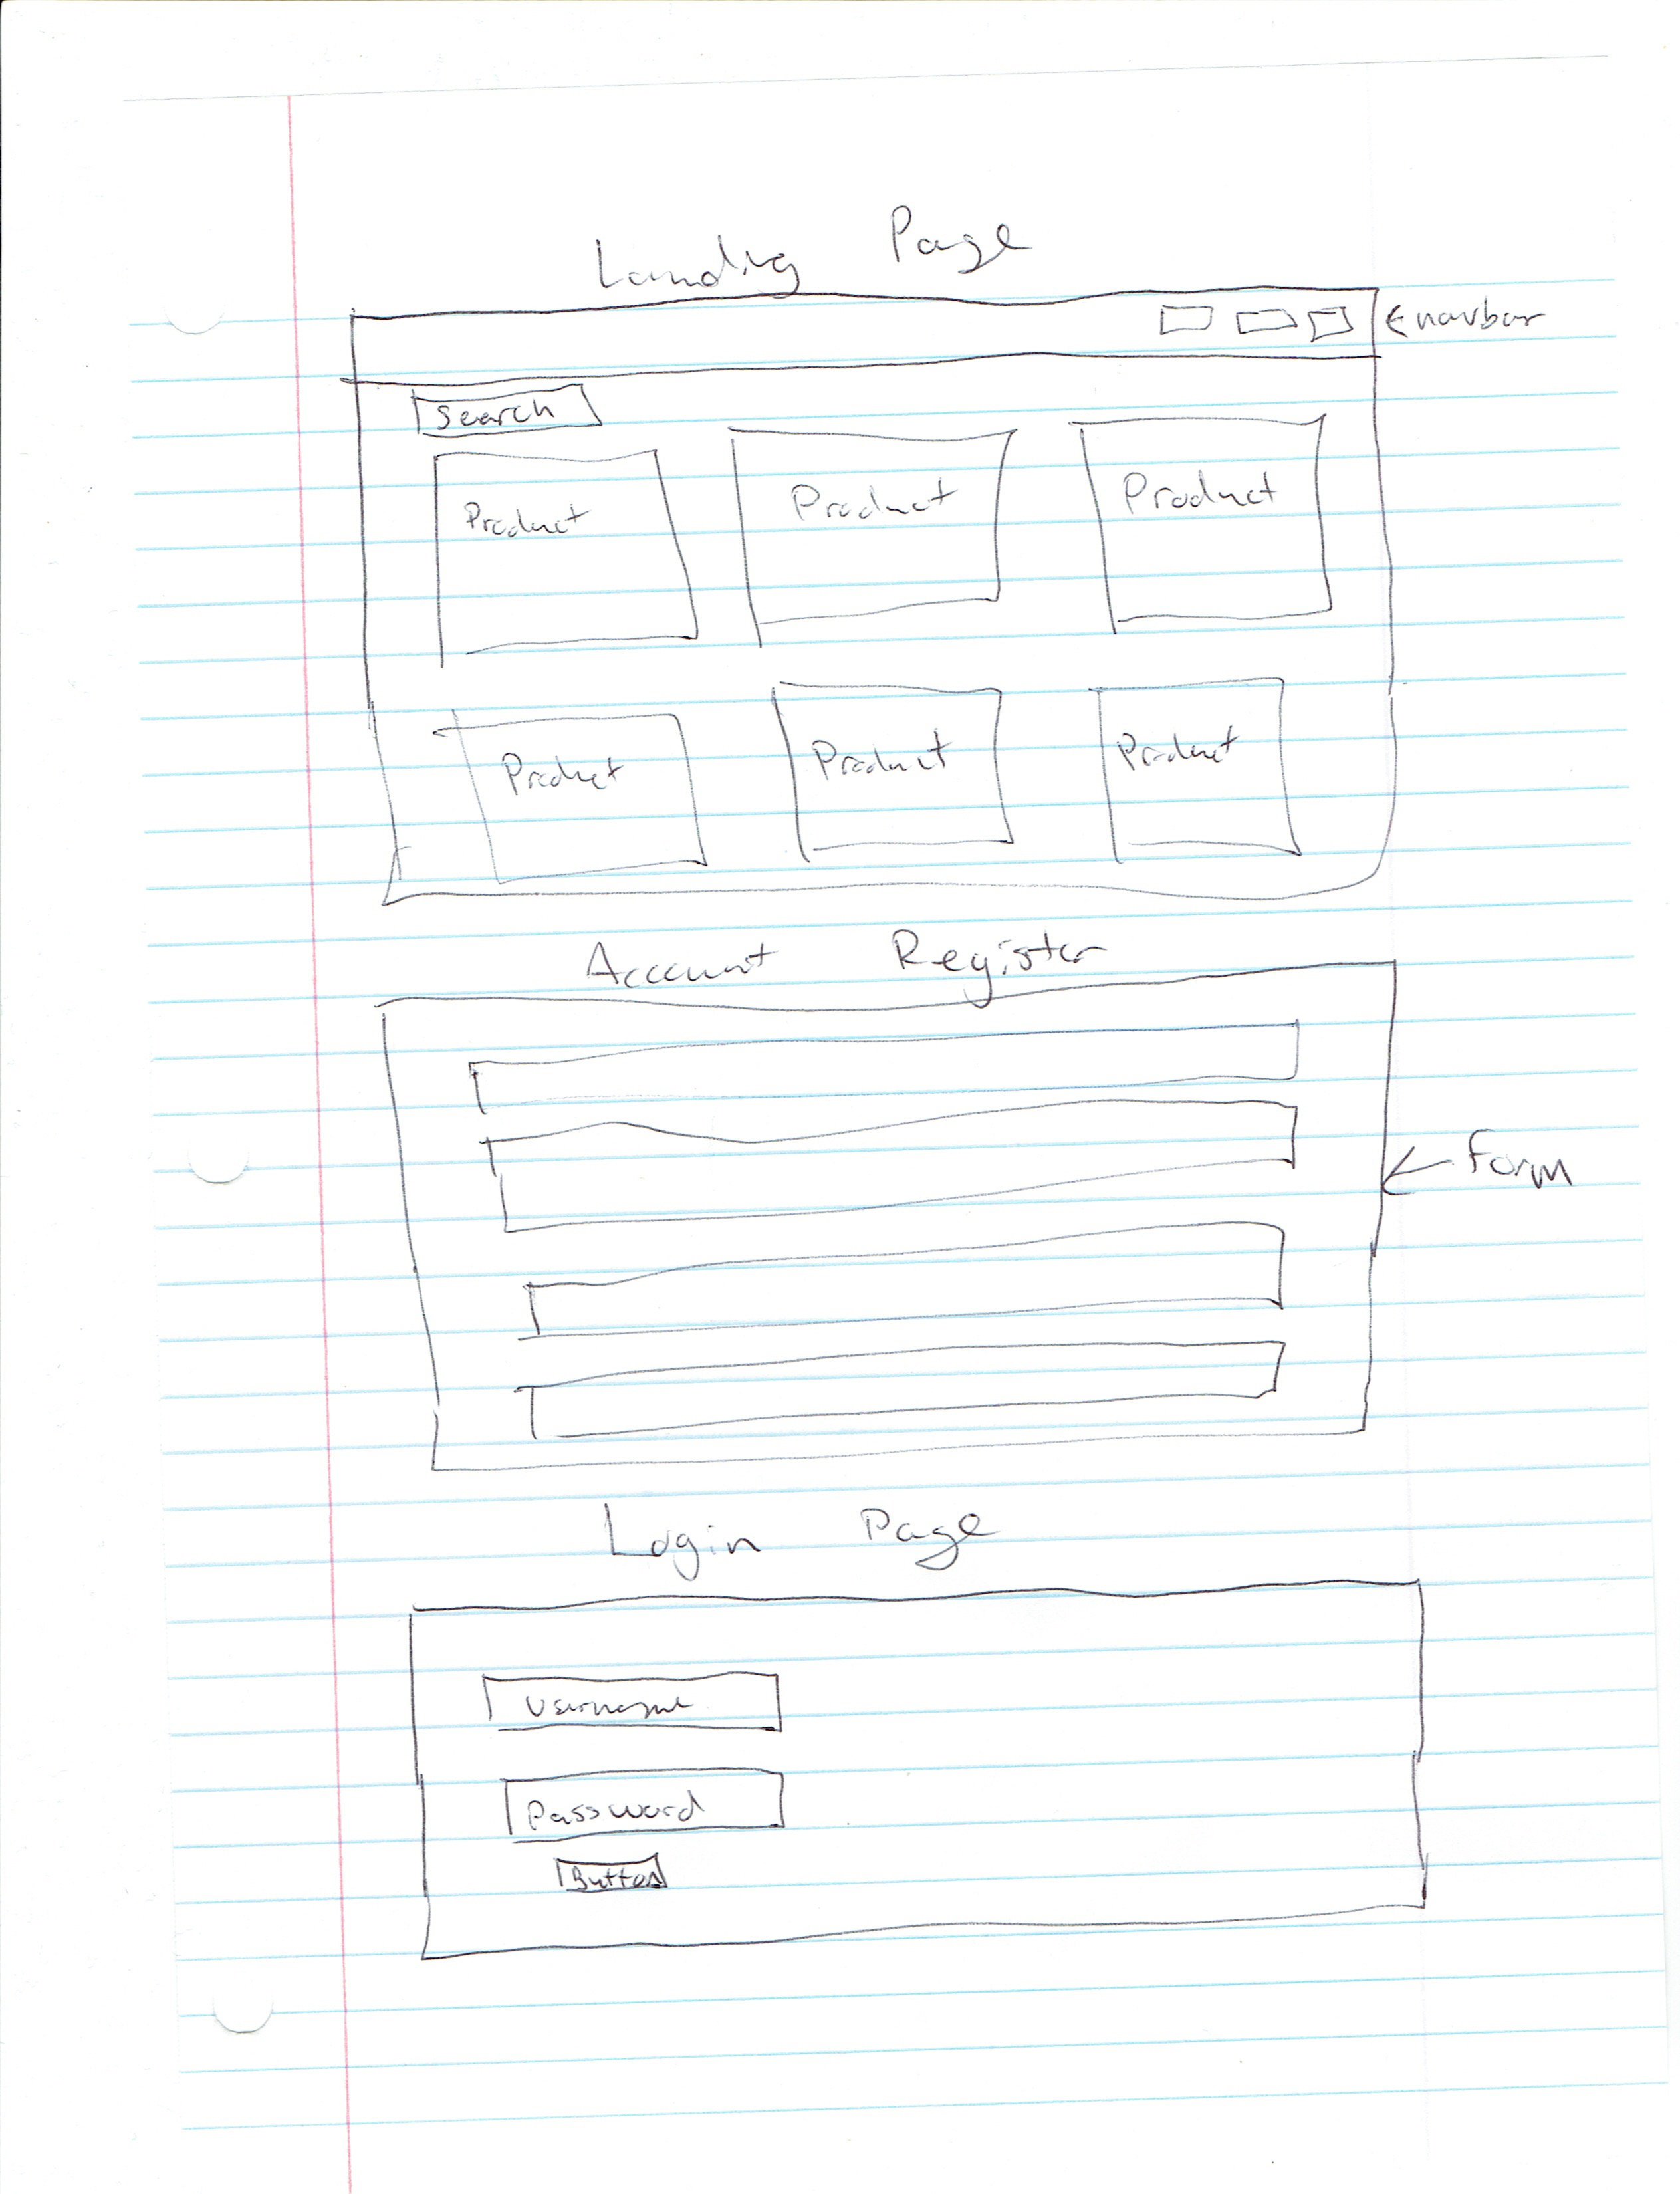 Landing Page
← navbar
Search
Product Product Product
Product Product Product
Account Register
← Form
Login Page
Username
Password
Button